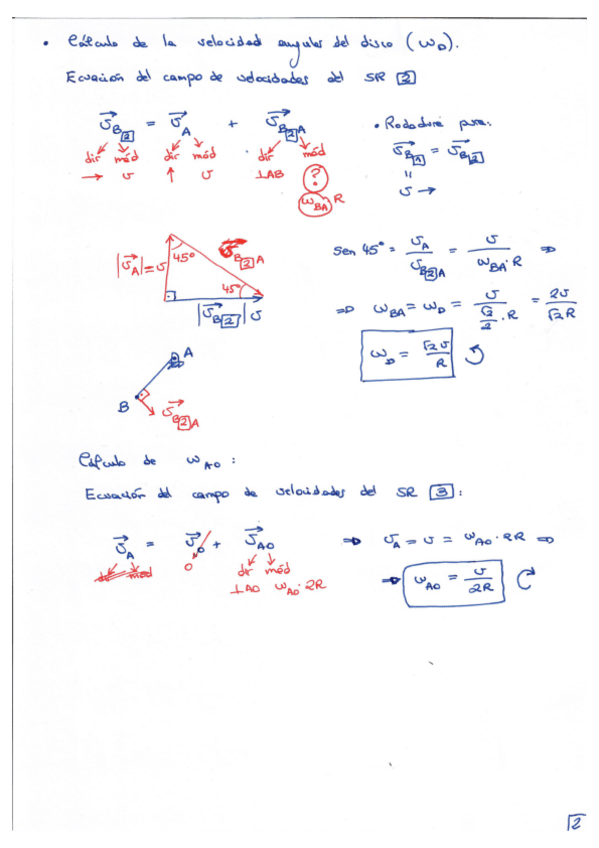 • Cálculo de la velocidad angular del disco (ω_D).
Ecuación del campo de velocidades del SR [2]
v⃗_B[2] = v⃗_A + v⃗_B[2]A
dir mód dir mód dir mód
→ v ↑ v ⊥AB ?
ω_BA·R
• Rodadura pura:
v⃗_B[1] = v⃗_B[2]
=
v →
|v⃗_A| = v 45º v⃗_B[2]A
45º
|v⃗_B[2]| v
sen 45º = v_A / v_B[2]A = v / (ω_BA·R) ⇒
⇒ ω_BA = ω_D = v / (√2/2 · R) = 2v / √2R
ω_D = √2v / R ↺
A
B
v⃗_B[2]A
Cálculo de ω_AO :
Ecuación del campo de velocidades del SR [3]:
v⃗_A = v⃗_O + v⃗_AO ⇒ v_A = v = ω_AO·2R ⇒
dir mód 0 dir mód
⊥AO ω_AO·2R
⇒ ω_AO = v / 2R ↻
2